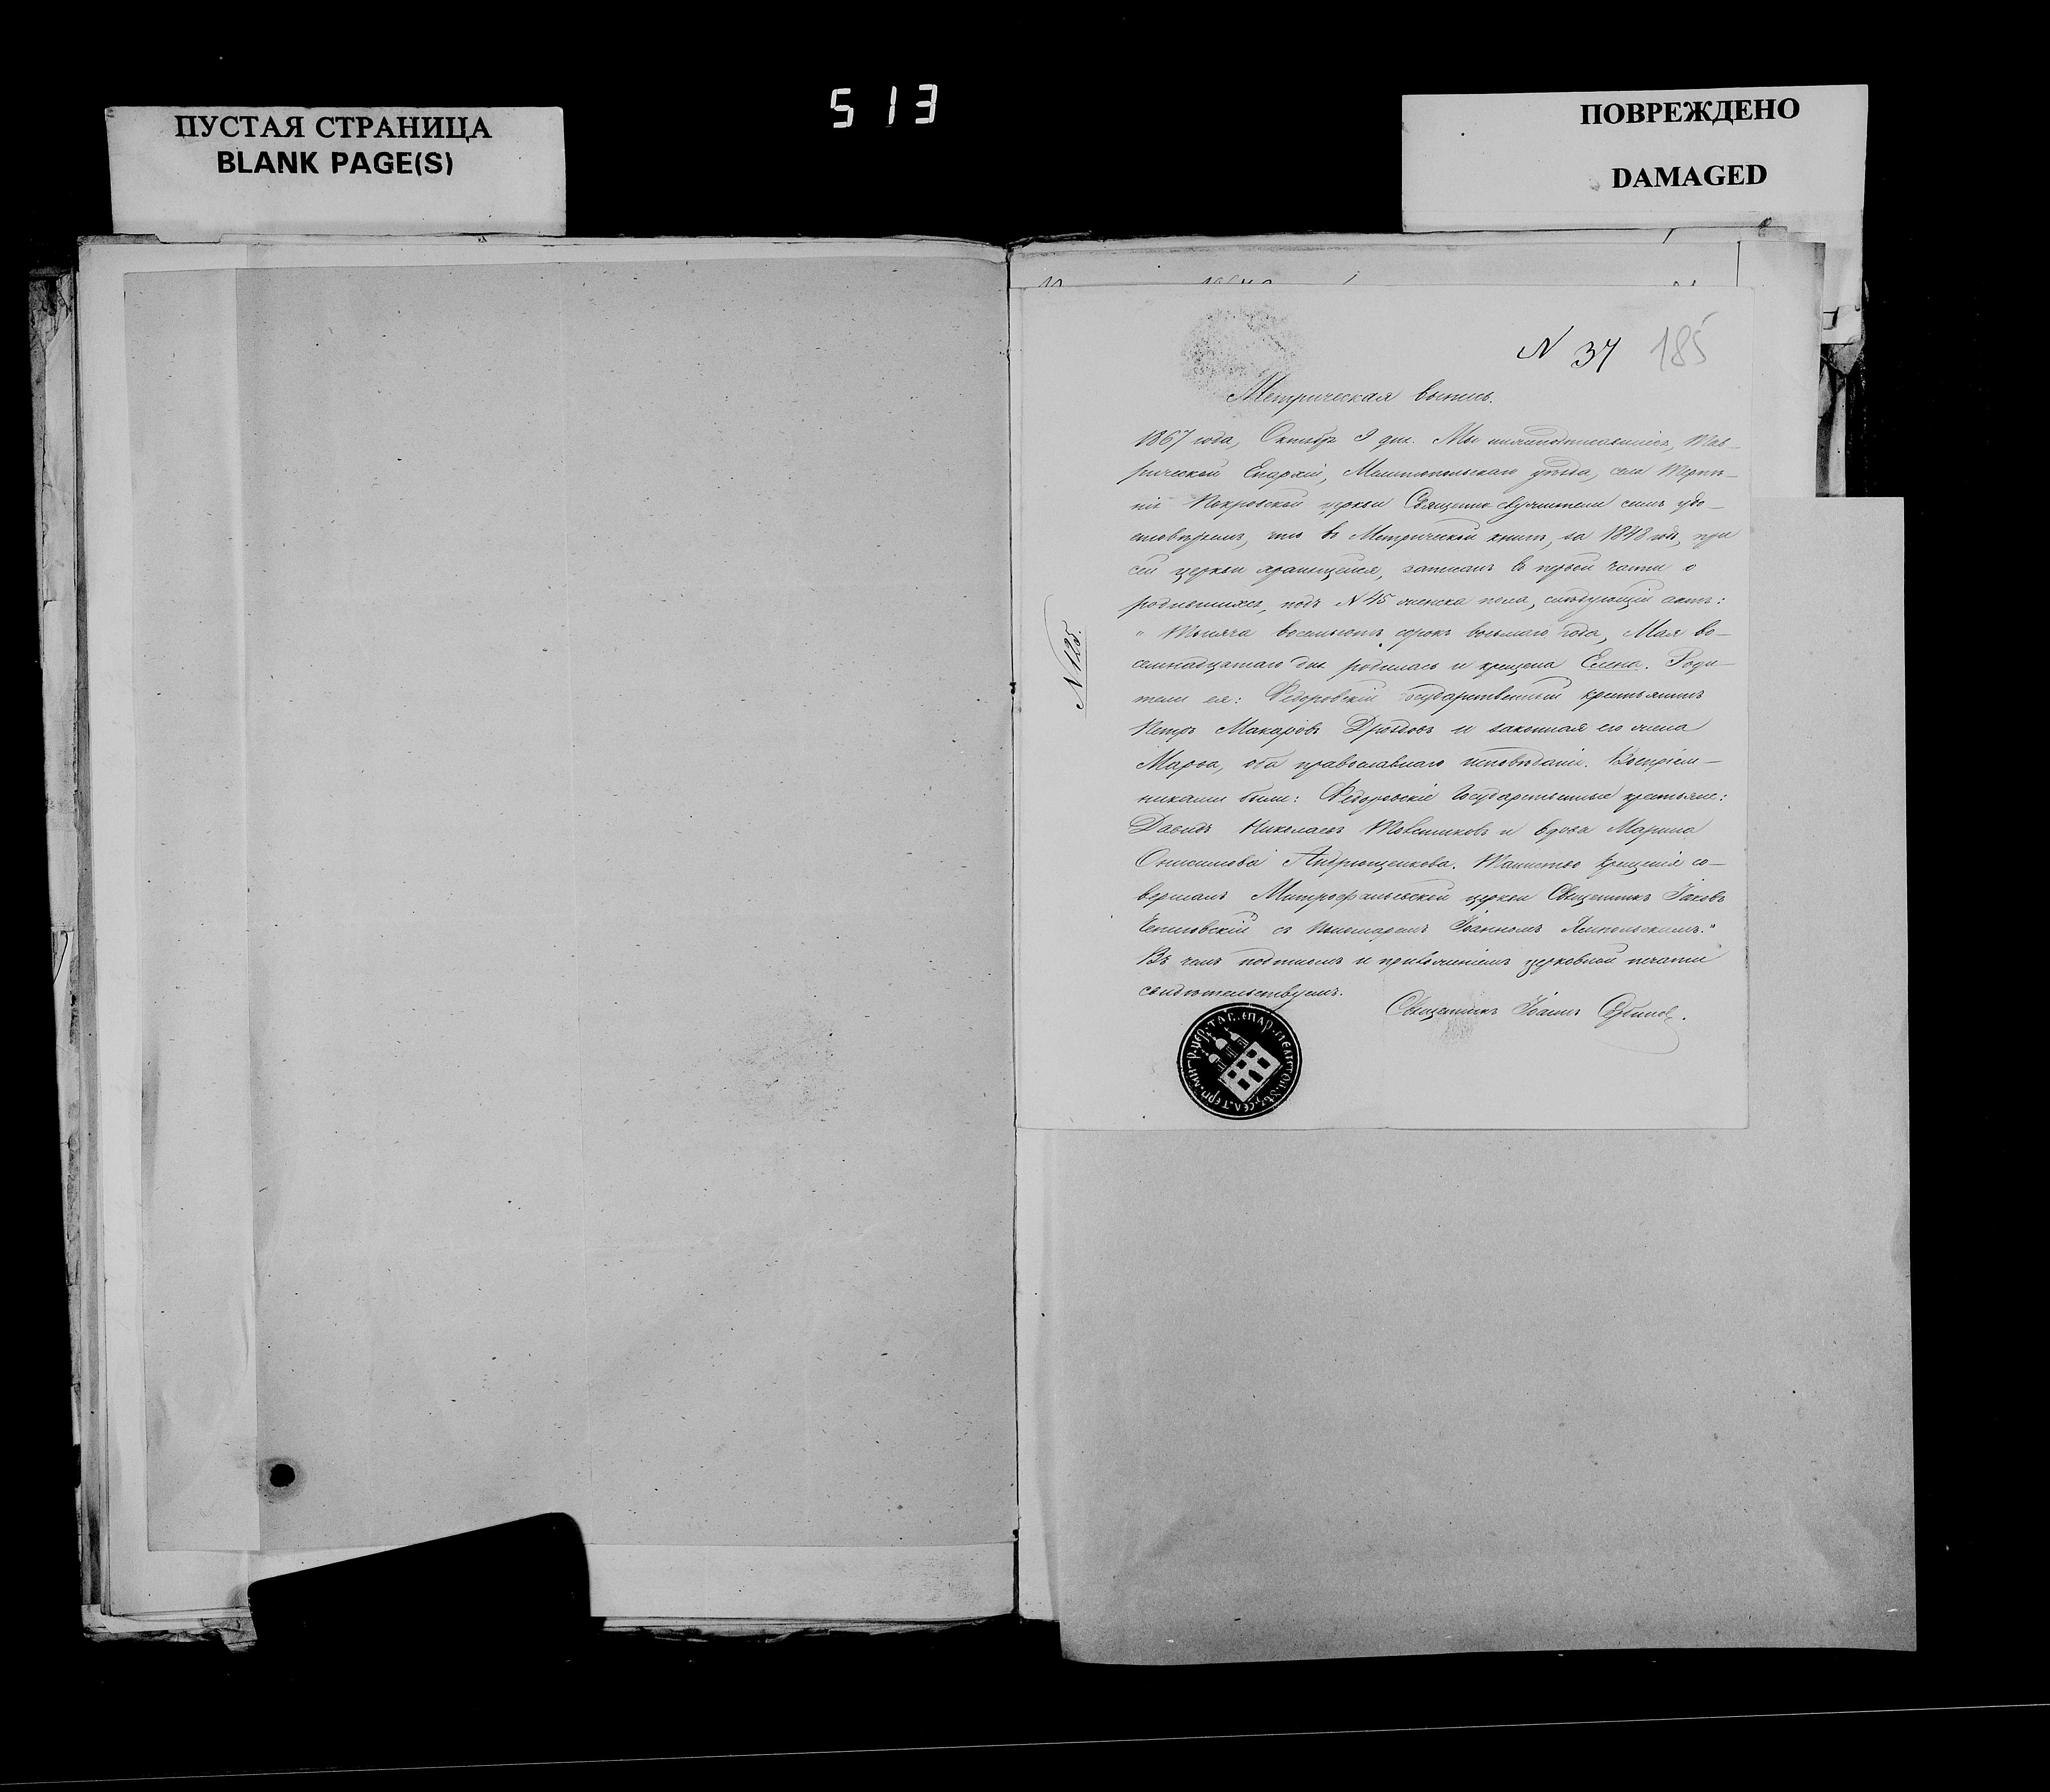 ПУСТАЯ СТРАНИЦА
BLANK PAGE(S)
513
ПОВРЕЖДЕНО
DAMAGED
N 37 185
Метрическая выпись.
1867 года, Октября 9 дня. Мы нижеподписавшіеся, Тав-
рической Епархіи, Мелитопольскаго уѣзда, села Терпѣ-
нія Покровской церкви Священно служители симъ удо-
стовѣряемъ, что въ Метрической книгѣ, за 1848 годъ, при
сей церкви хранящейся, записанъ въ первой части о
родившихся, подъ N 45 женска пола, слѣдующій актъ:
„ Тысяча восемьсотъ сорокъ восьмаго года, Мая во-
семнадцатаго дня родилась и крещена Елена. Роди-
тели ея: Ѳедоровскій государственный крестьянинъ
Петръ Макаровъ Дроздовъ и законная его жена
Марѳа, оба православнаго исповѣданія. Воспріем-
никами были: Ѳедоровскіе Государственные крестьяне:
Давидъ Николаевъ и вдова Марина
Онисимова Андрющенкова. Таинство крещенія со-
вершалъ Митрофаньевской церкви Священникъ Іаковъ
съ Пономаремъ Іоанномъ Ямпольскимъ."
Въ чемъ подписомъ и приложеніемъ церковной печати
свидѣтельствуемъ.
Священникъ Іоаннъ
N 125.